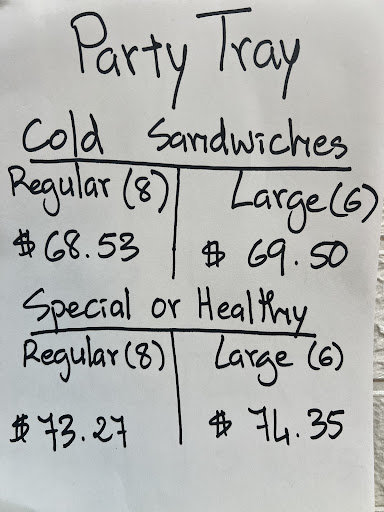 Party Tray
Cold Sandwiches
Regular (8) Large (6)
$ 68.53 $ 69.50
Special or Healthy
Regular (8) Large (6)
$ 73.27 $ 74.35